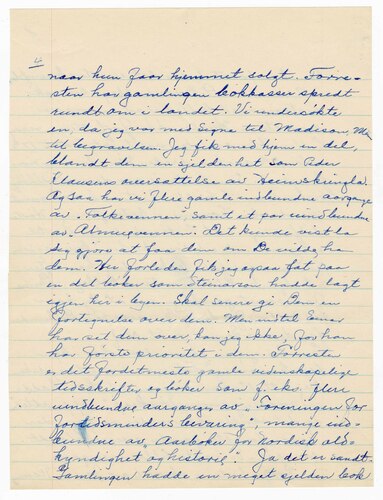 4
naar hun faar hjemmet solgt. Forre-
sten har gamlingen bokkasser spredt
rundt om i landet. Vi undersøkte
en, da jeg var med Signe til Madison,
til begravelsen. Jeg fik med hjem en del,
blandt dem en sjeldenhet som Peder
Clausens oversættelse av Heimskringla.
Ogsaa har vi flere gamle indbundne aargange
av "Folkevennen" samt et par uindbundne
av "Almuevennen". Det kunde vist la
sig gjøre at faa dem om De vilde ha
dem. Her forleden fik jeg ogsaa fat paa
en del bøker som Steinarson hadde lagt
igjen her i byen. Skal senere gi Dem en
fortegnelse over dem. Men indtil Einar
har set dem over, kan jeg ikke, for han
har første prioritet i dem. Forresten
er det fordetmeste gamle videnskapelige
tidsskrifter og bøker som f. eks. flere
uindbundne aarganger av "Foreningen for
fortidsminders bevaring", mange ind-
bundne av "Aarbøker for Nordisk old-
kyndighet og historie". Ja det er sandt.
Samlingen hadde en meget sjelden bok